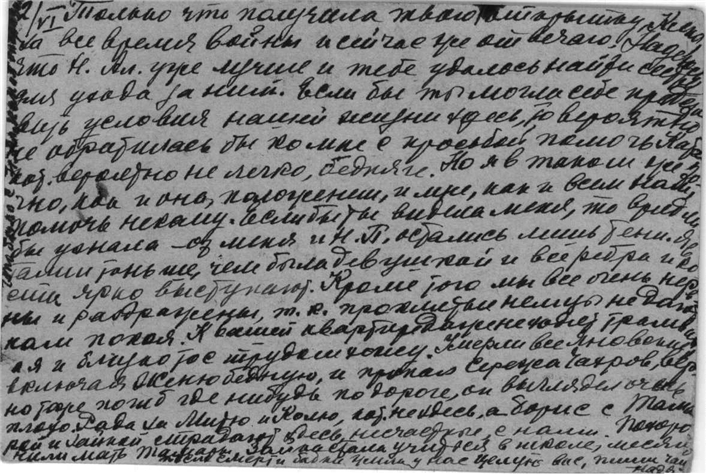 2/VI Только что получила твою открытку
за все время войны и сейчас же отвечаю. Надеюсь
что Н. Ал. уже лучше и тебе удалось найти
для ухода за ним. Если бы ты могла себе предста
вить условия нашей жизни здесь, то вероятно
не обратилась бы ко мне с просьбой помочь
кот. вероятно не легко, бедняге. Но я в таком же
чно, как и она, положении, и мне, как и всем нам
помочь некому. Если бы ты видела меня, то вряд ли
бы узнала – от меня и Н.П. остались лишь тени. Я
тоньше, чем была девушкой и все ребра и ко
сти ярко выступают. Кроме того мы все очень нерв
ны и раздражены, т.к. проклятые немцы не дают
нам покоя. К вашей квартире даже не ходит трамвай
я и близко то с трудом хожу. Умерли все Яновские
включая Ксеню бедную, и пропал Сережа вер
но тоже погиб где нибудь по дороге, он выглядел очень
плохо. Рада за Митю и Колю, кот. не здесь, а Борис с Тама
рой и Хайкой страдают здесь, несчастные, с нами. Похоро
нили мать Тамары. учиться в школе, месяц
после смерти бабки жили у нас целую